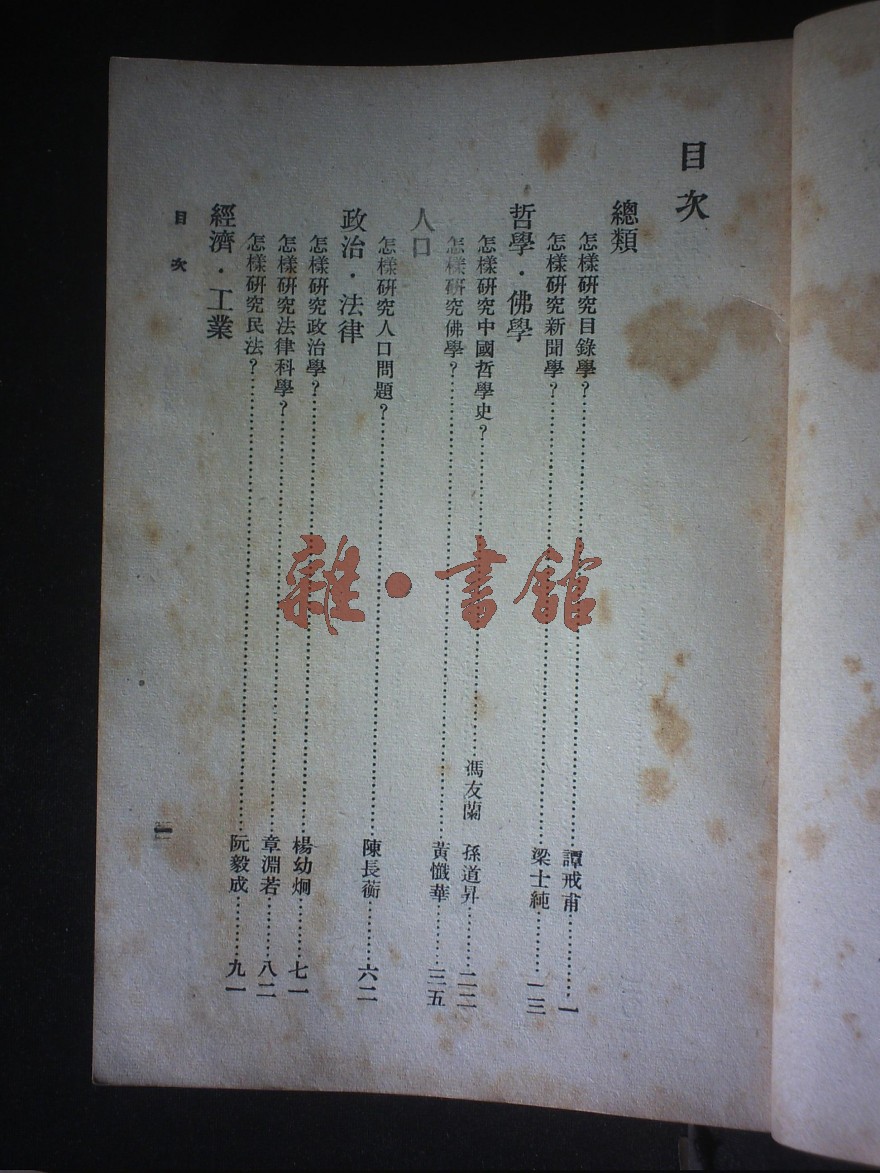 目次
總類
怎樣研究目錄學?……譚戒甫……一
怎樣研究新聞學?……梁士純……一三
哲學・佛學
怎樣研究中國哲學史?……馮友蘭 孫道昇……二二
怎樣研究佛學?……黃懺華……三五
人口
怎樣研究人口問題?……陳長蘅……六二
政治・法律
怎樣研究政治學?……楊幼炯……七一
怎樣研究法律科學?……章淵若……八二
怎樣研究民法?……阮毅成……九一
經濟・工業
目次
一
雜・書館